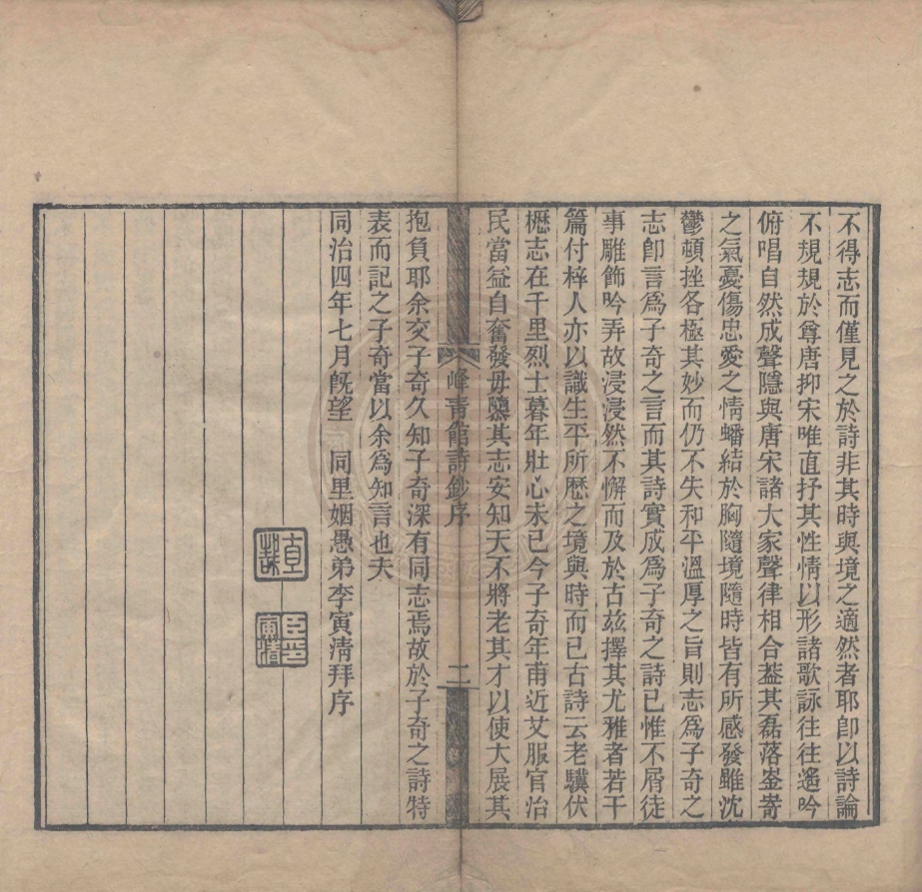 不得志而僅見之於詩非其時與境之適然者耶卽以詩論
不規規於尊唐抑宋唯直抒其性情以形諸歌詠往往遙吟
俯唱自然成聲隱與唐宋諸大家聲律相合葢其磊落崟嵜
之氣憂傷忠愛之情蟠結於胸隨境隨時皆有所感發雖沈
鬱頓挫各極其妙而仍不失和平溫厚之旨則志爲子奇之
志卽言爲子奇之言而其詩實成爲子奇之詩已惟不屑徒
事雕飾吟弄故浸浸然不懈而及於古玆擇其尤雅者若干
篇付梓人亦以識生平所歷之境與時而已古詩云老驥伏
櫪志在千里烈士暮年壯心未已今子奇年甫近艾服官治
民當益自奮發毋隳其志安知天不將老其才以使大展其
峰青館詩鈔序
二
抱負耶余交子奇久知子奇深有同志焉故於子奇之詩特
表而記之子奇當以余爲知言也夫
同治四年七月旣望 同里姻愚弟李寅清拜序